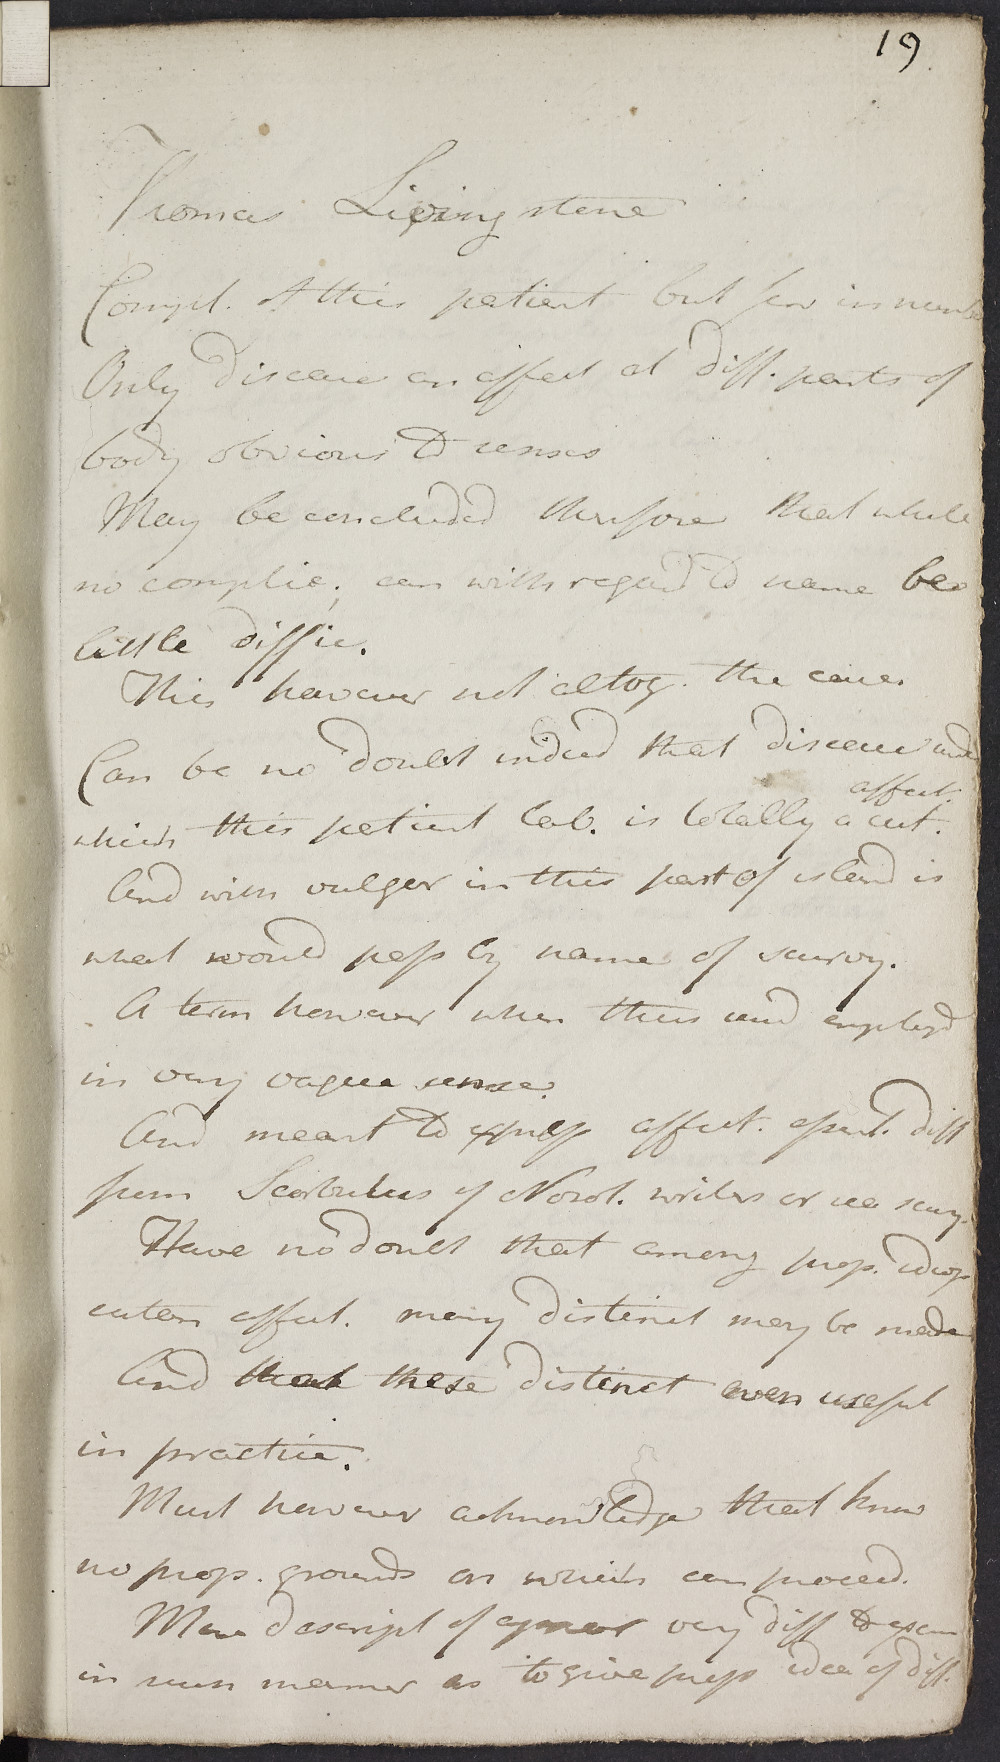 19
Thomas Livingstone
Compl. of this patient but few in numb
Only disease an affect at diff. parts of
body obvious to senses
May be concluded therefore that while
no complic. can with regard to name be
little diffic.
This however not altog. the case.
Can be no doubt indeed that disease und
affect.
which this patient lab. is totally a cut.
And with vulgar in this part of island is
what would pass by name of scurvy.
A term however when thus used employd
in very vague sense.
And meant to express affect. essent. diff
from Scorbutus of Nosol. writers or sea scurv.
Have no doubt that among prop. idiop
cutan affect. many distinct may be made
And that these distinct even useful
in practice.
Must however acknowledge that know
no prop. grounds on which can proceed.
Mere descript of very diff to
in such manner as to give prop idea of diff.